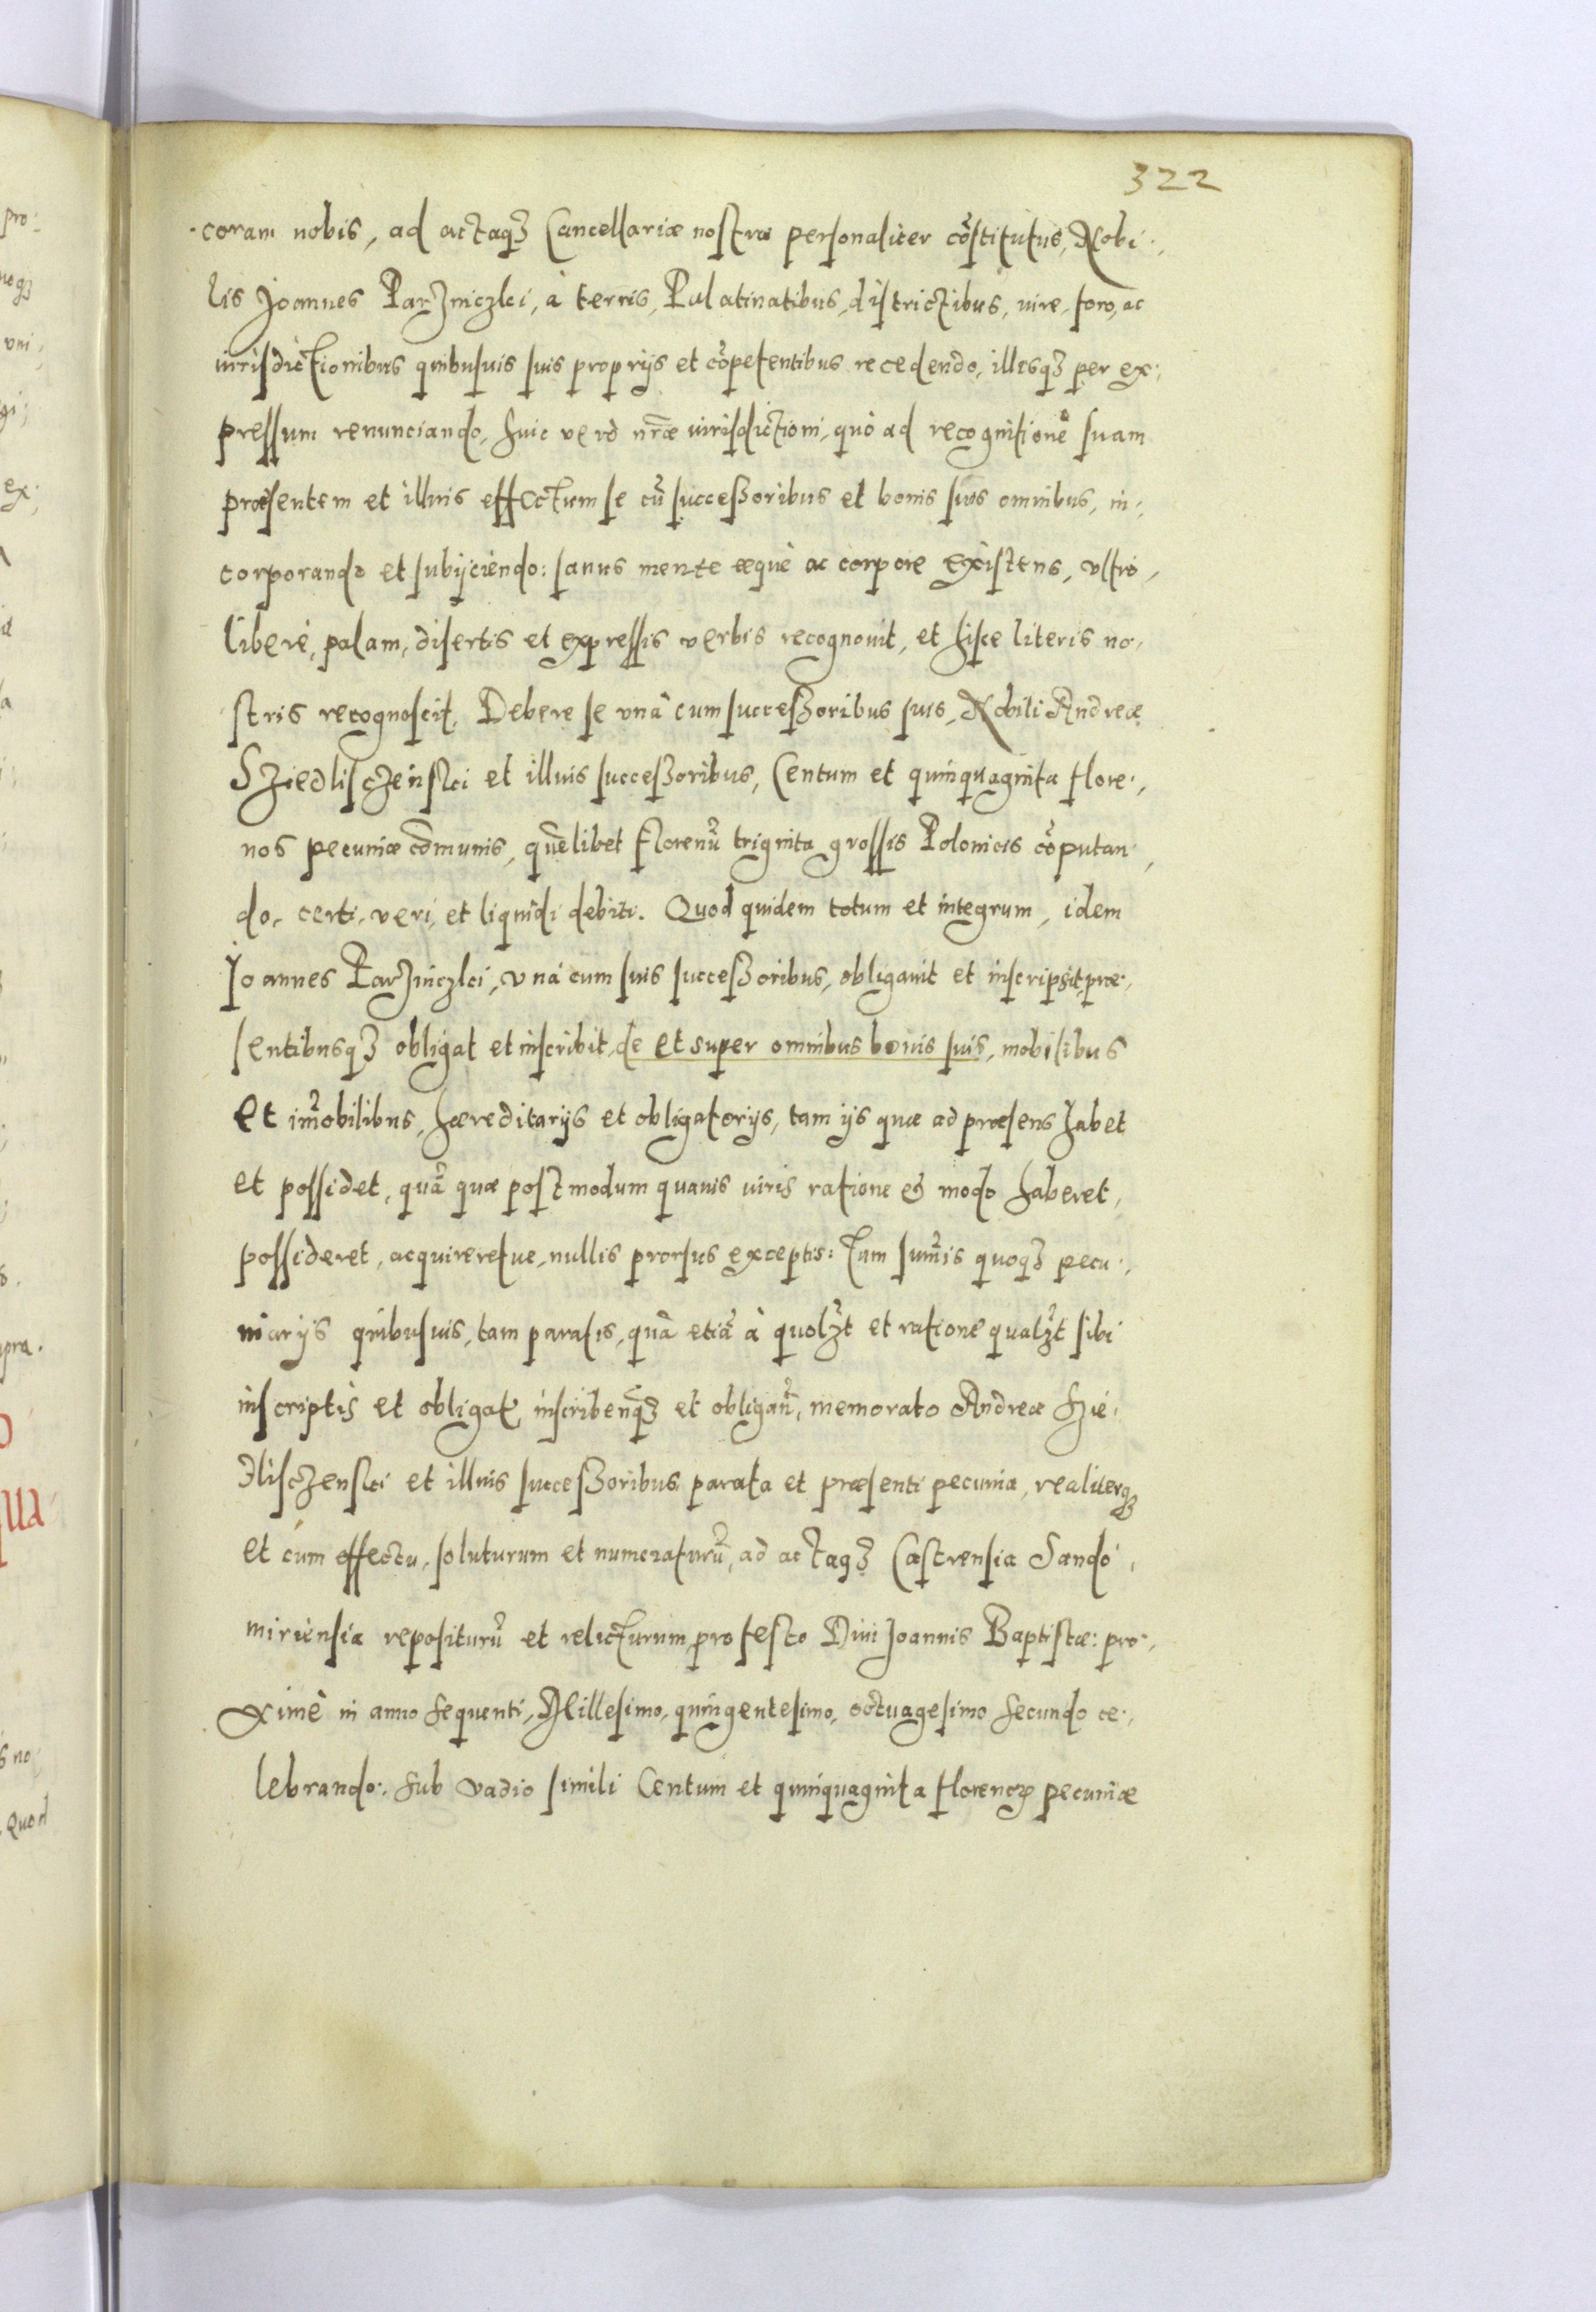 322
coram nobis, ad actaqȝ Cancellariæ nostræ personaliter cõstitutus, Nobi:,
lis Joannes Parzniczki, à terris, Palatinatibus, districtibus, iure, foro, ac
iurisdictionibus quibusuis suis proprijs et cõpetentibus recedendo, illisqȝ per ex:
pressum renunciando, huic verò nr̃æ iurisdictioni, quò ad recognitionẽ suam
præsentem et illius effectum se cũ successoribus et bonis suis omnibus, in:,
corporando et subijciendo: sanus mente æquè ac corpore existens, vltrò,
liberè, palam, disertis et expressis verbis recognouit, et hisce literis no,
stris recognoscit, Debere se vnà cum successoribus suis, Nobili Andreæ
Sziedlisczenski et illius successoribus, Centum et quinquaginta flore:,
nos pecuniæ cõmunis, quẽlibet florenũ triginta grossis Polonicis cõputan:,
do, certi, veri, et liquidi debiti. Quod quidem totum et integrum, idem
Joannes Parzniczki, vnà cum suis successoribus, obligauit et inscripsit, præ:,
sentibusqȝ obligat et inscribit, de et super omnibus bonis suis, mobilibus
et im̃obilibus, hæreditarijs et obligatorijs, tam ijs quæ ad præsens habet
et possidet, quã quæ postmodum quauis iuris ratione & modo haberet,
possideret, acquireretue, nullis prorsus exceptis: Tam sum̃is quoqȝ pecu:,
niarijs quibusuis, tam paratis, quã etiã à quolȝt et ratione qualȝt sibi
inscriptis et obligat, inscribenqȝ et obligan̄, memorato Andreæ Szie,
dlisczenski et illius successoribus parata et præsenti pecunia, realiterqȝ
et cum effectu, soluturum et numeraturũ, ad actaqȝ Castrensia Sando:,
miriensia repositurũ et relicturum, pro festo Diui Joannis Baptistæ: pro:,
ximè in anno sequenti, Millesimo, quingentesimo, octuagesimo secundo ce:,
lebrando: sub vadio simili Centum et quinquaginta florenoꝝ pecuniæ